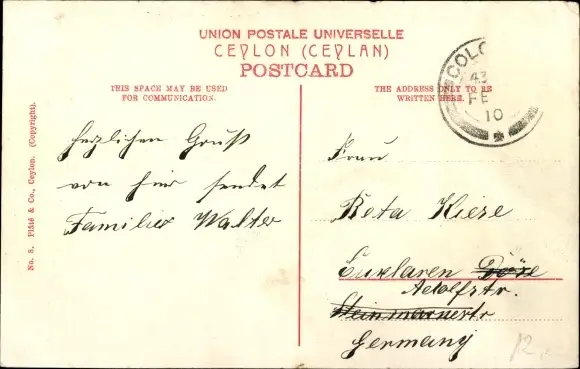 UNION POSTALE UNIVERSELLE
CEYLON (CEYLAN)
POSTCARD
THIS SPACE MAY BE USED
FOR COMMUNICATION.
THE ADDRESS ONLY TO BE
WRITTEN HERE.
COLO
43
FE
10
No. 8. Plâté & Co., Ceylon. (Copyright).
herzlichen Gruß
von hier sendet
Familie Walter
Frau
Beta Kiese
Adolfstr.
Steinmarnestr
Germany
12,-